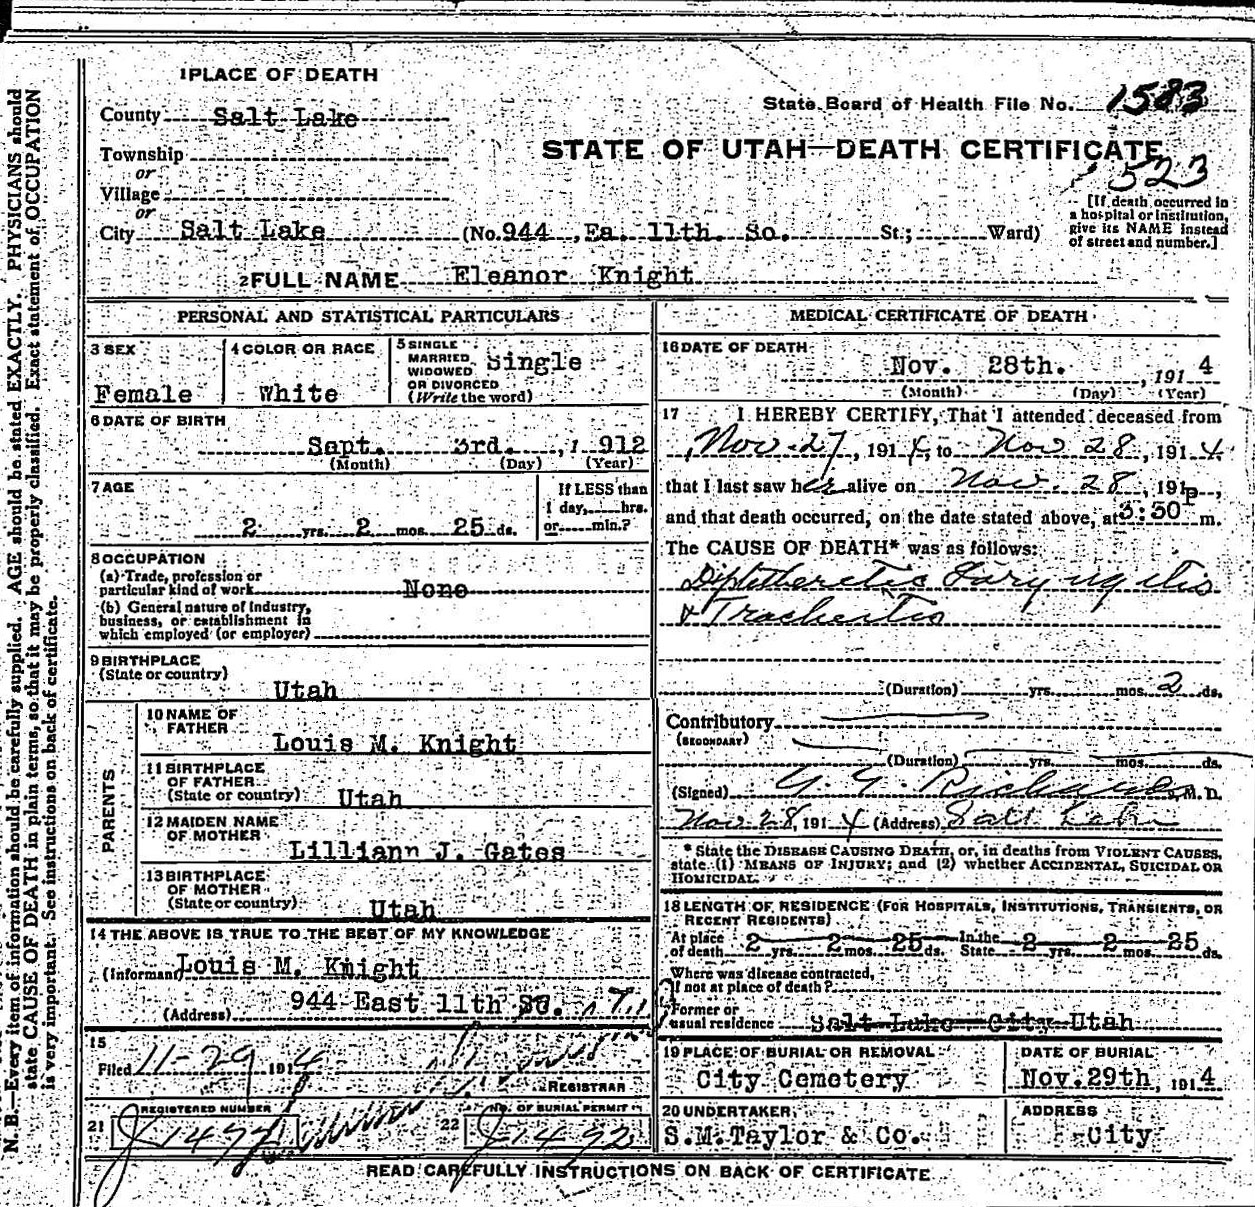 N. B.—Every item of information should be carefully supplied. AGE should be stated EXACTLY. PHYSICIANS should
state CAUSE OF DEATH in plain terms, so that it may be properly classified. Exact statement of OCCUPATION
is very important. See instructions on back of certificate.
1 PLACE OF DEATH
County Salt Lake
State Board of Health File No. 1583
Township
or
STATE OF UTAH—DEATH CERTIFICATE
523
Village
or
City Salt Lake (No. 944 , Ea. 11th. So. St.; Ward)
[If death occurred in
a hospital or institution,
give its NAME instead
of street and number.]
2 FULL NAME Eleanor Knight
PERSONAL AND STATISTICAL PARTICULARS
3 SEX
Female
4 COLOR OR RACE
White
5 SINGLE
MARRIED
WIDOWED
OR DIVORCED
(Write the word)
Single
6 DATE OF BIRTH
Sept. 3rd. , 1 912
(Month) (Day) (Year)
7 AGE
2 yrs. 2 mos. 25 ds.
If LESS than
1 day, hrs.
or min.?
8 OCCUPATION
(a) Trade, profession or
particular kind of work None
(b) General nature of industry,
business, or establishment in
which employed (or employer)
9 BIRTHPLACE
(State or country)
Utah
PARENTS
10 NAME OF
FATHER
Louis M. Knight
11 BIRTHPLACE
OF FATHER
(State or country) Utah
12 MAIDEN NAME
OF MOTHER
Lilliann J. Gates
13 BIRTHPLACE
OF MOTHER
(State or country)
Utah
14 THE ABOVE IS TRUE TO THE BEST OF MY KNOWLEDGE
(Informant) Louis M. Knight
944 East 11th So.
(Address)
15
Filed 11-29 1914
REGISTRAR
REGISTERED NUMBER
21 J1492
NO. OF BURIAL PERMIT
22 J1492
MEDICAL CERTIFICATE OF DEATH
16 DATE OF DEATH
Nov. 28th. , 191 4
(Month) (Day) (Year)
17 I HEREBY CERTIFY, That I attended deceased from
Nov. 27, 1914, to Nov 28, 1914
that I last saw her alive on Nov. 28, 191 ,
and that death occurred, on the date stated above, at 3:30 p m.
The CAUSE OF DEATH* was as follows:
Diptetheretic Laryngitis
& Tracheitis
(Duration) yrs. mos. 2 ds.
Contributory
(SECONDARY)
(Duration) yrs. mos. ds.
(Signed) G. G. Richards, M. D.
Nov 28, 1914 (Address) Salt Lake
* State the DISEASE CAUSING DEATH, or, in deaths from VIOLENT CAUSES,
state (1) MEANS OF INJURY; and (2) whether ACCIDENTAL, SUICIDAL OR
HOMICIDAL.
18 LENGTH OF RESIDENCE (FOR HOSPITALS, INSTITUTIONS, TRANSIENTS, OR
RECENT RESIDENTS)
At place
of death 2 yrs. 2 mos. 25 ds. In the
State 2 yrs. 2 mos. 25 ds.
Where was disease contracted,
if not at place of death?
Former or
usual residence Salt Lake City Utah
19 PLACE OF BURIAL OR REMOVAL
City Cemetery
DATE OF BURIAL
Nov. 29th , 191 4
20 UNDERTAKER
S.M.Taylor & Co.
ADDRESS
City
READ CAREFULLY INSTRUCTIONS ON BACK OF CERTIFICATE